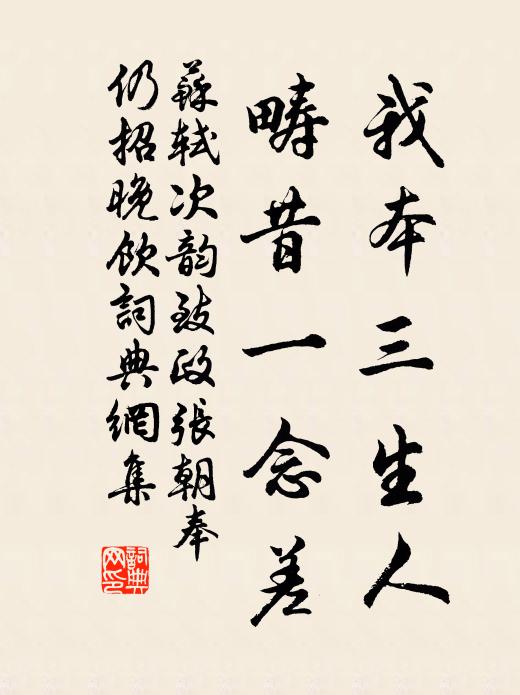 我本三生人
疇昔一念差
蘇軾次韵致政張朝奉
仍招晚飲詞典網集
詞典
网印